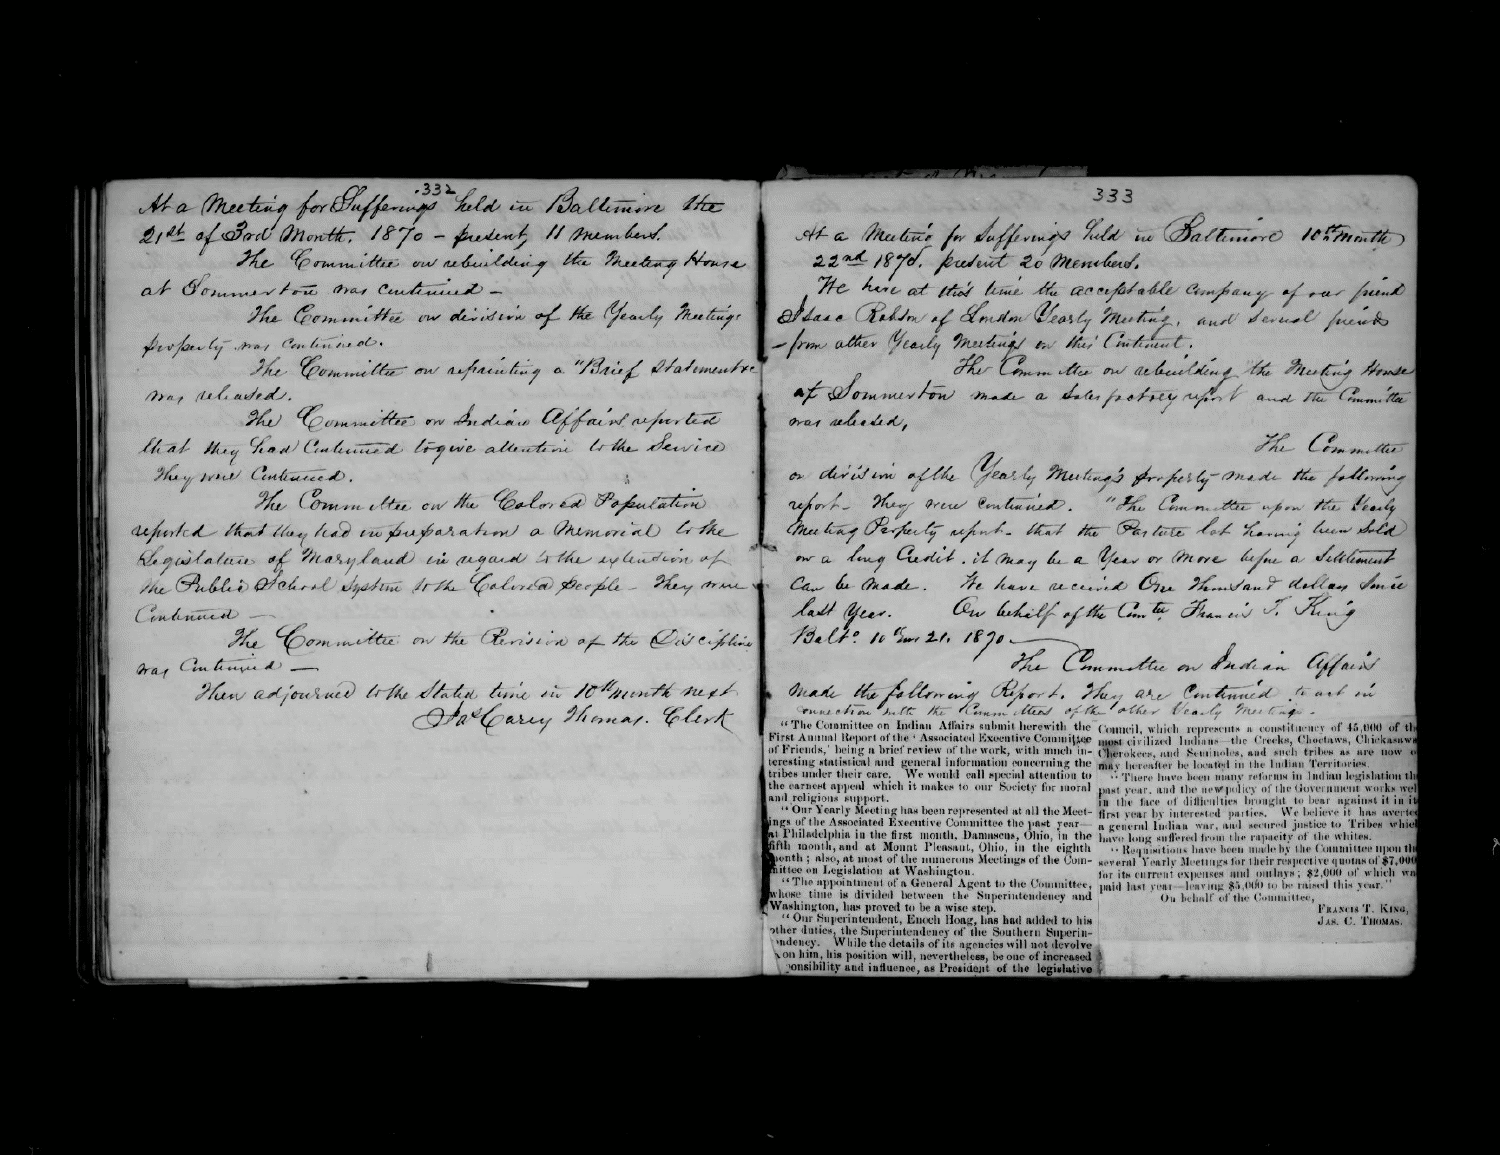 332
At a Meeting for Sufferings held in Baltimore the
21st of 3rd Month. 1870 – present, 11 members.
The Committee on rebuilding the Meeting House
at Somerton was continued –
The Committee on division of the Yearly Meetings
property was continued.
The Committee on reprinting a "Brief Statement &c
was released.
The Committee on Indian Affairs reported
that they had continued to give attention to the Service
They were continued.
The Committee on the Colored Population
reported that they had in preparation a Memorial to the
Legislature of Maryland in regard to the extension of
the Public School System to the Colored people They were
Continued –
The Committee on the Revision of the Discipline
was continued –
Then adjourned to the Stated time in 10th month next
Jas Carey Thomas. Clerk
333
At a Meeting for Sufferings held in Baltimore 10th Month
22nd 1870. present 20 Members.
We have at this time the acceptable company of our friend
Isaac Robson of London Yearly Meeting, and several friends
– from other Yearly Meetings on this Continent.
The Committee on rebuilding the Meeting House
at Sommerton made a satisfactory report and the Committee
was released,
The Committee
on division of the Yearly Meeting's property made the following
report – They were continued. "The Committee upon the Yearly
Meeting Property report – that the Pasture lot having been Sold
on a long Credit, it may be a Year or more before a Settlement
can be made. We have received One Thousand dollars Since
last Year. On behalf of the Comtee, Francis T. King
Balto. 10 mo 21. 1870 –
The Committee on Indian Affairs
made the following Report. They are continued to act in
connection with the Committees of the other Yearly Meetings –
"The Committee on Indian Affairs submit herewith the
First Annual Report of the 'Associated Executive Committee
of Friends,' being a brief review of the work, with much in-
teresting statistical and general information concerning the
tribes under their care. We would call special attention to
the earnest appeal which it makes to our Society for moral
and religious support.
"Our Yearly Meeting has been represented at all the Meet-
ings of the Associated Executive Committee the past year—
at Philadelphia in the first month, Damascus, Ohio, in the
fifth month, and at Mount Pleasant, Ohio, in the eighth
month; also, at most of the numerous Meetings of the Com-
mittee on Legislation at Washington.
"The appointment of a General Agent to the Committee,
whose time is divided between the Superintendency and
Washington, has proved to be a wise step.
"Our Superintendent, Enoch Hoag, has had added to his
other duties, the Superintendency of the Southern Superin-
ndency. While the details of its agencies will not devolve
on him, his position will, nevertheless, be one of increased
ponsibility and influence, as President of the legislative
Council, which represents a constituency of 45,000 of th
most civilized Indians—the Creeks, Choctaws, Chickasaws
Cherokees, and Seminoles, and such tribes as are now o
may hereafter be located in the Indian Territories.
"There have been many reforms in Indian legislation th
past year, and the new policy of the Government works wel
in the face of difficulties brought to bear against it in it
first year by interested parties. We believe it has averte
a general Indian war, and secured justice to Tribes whic
have long suffered from the rapacity of the whites.
"Requisitions have been made by the Committee upon th
several Yearly Meetings for their respective quotas of $7,000
for its current expenses and outlays; $2,000 of which wa
paid last year—leaving $5,000 to be raised this year."
On behalf of the Committee,
FRANCIS T. KING,
JAS. C. THOMAS.